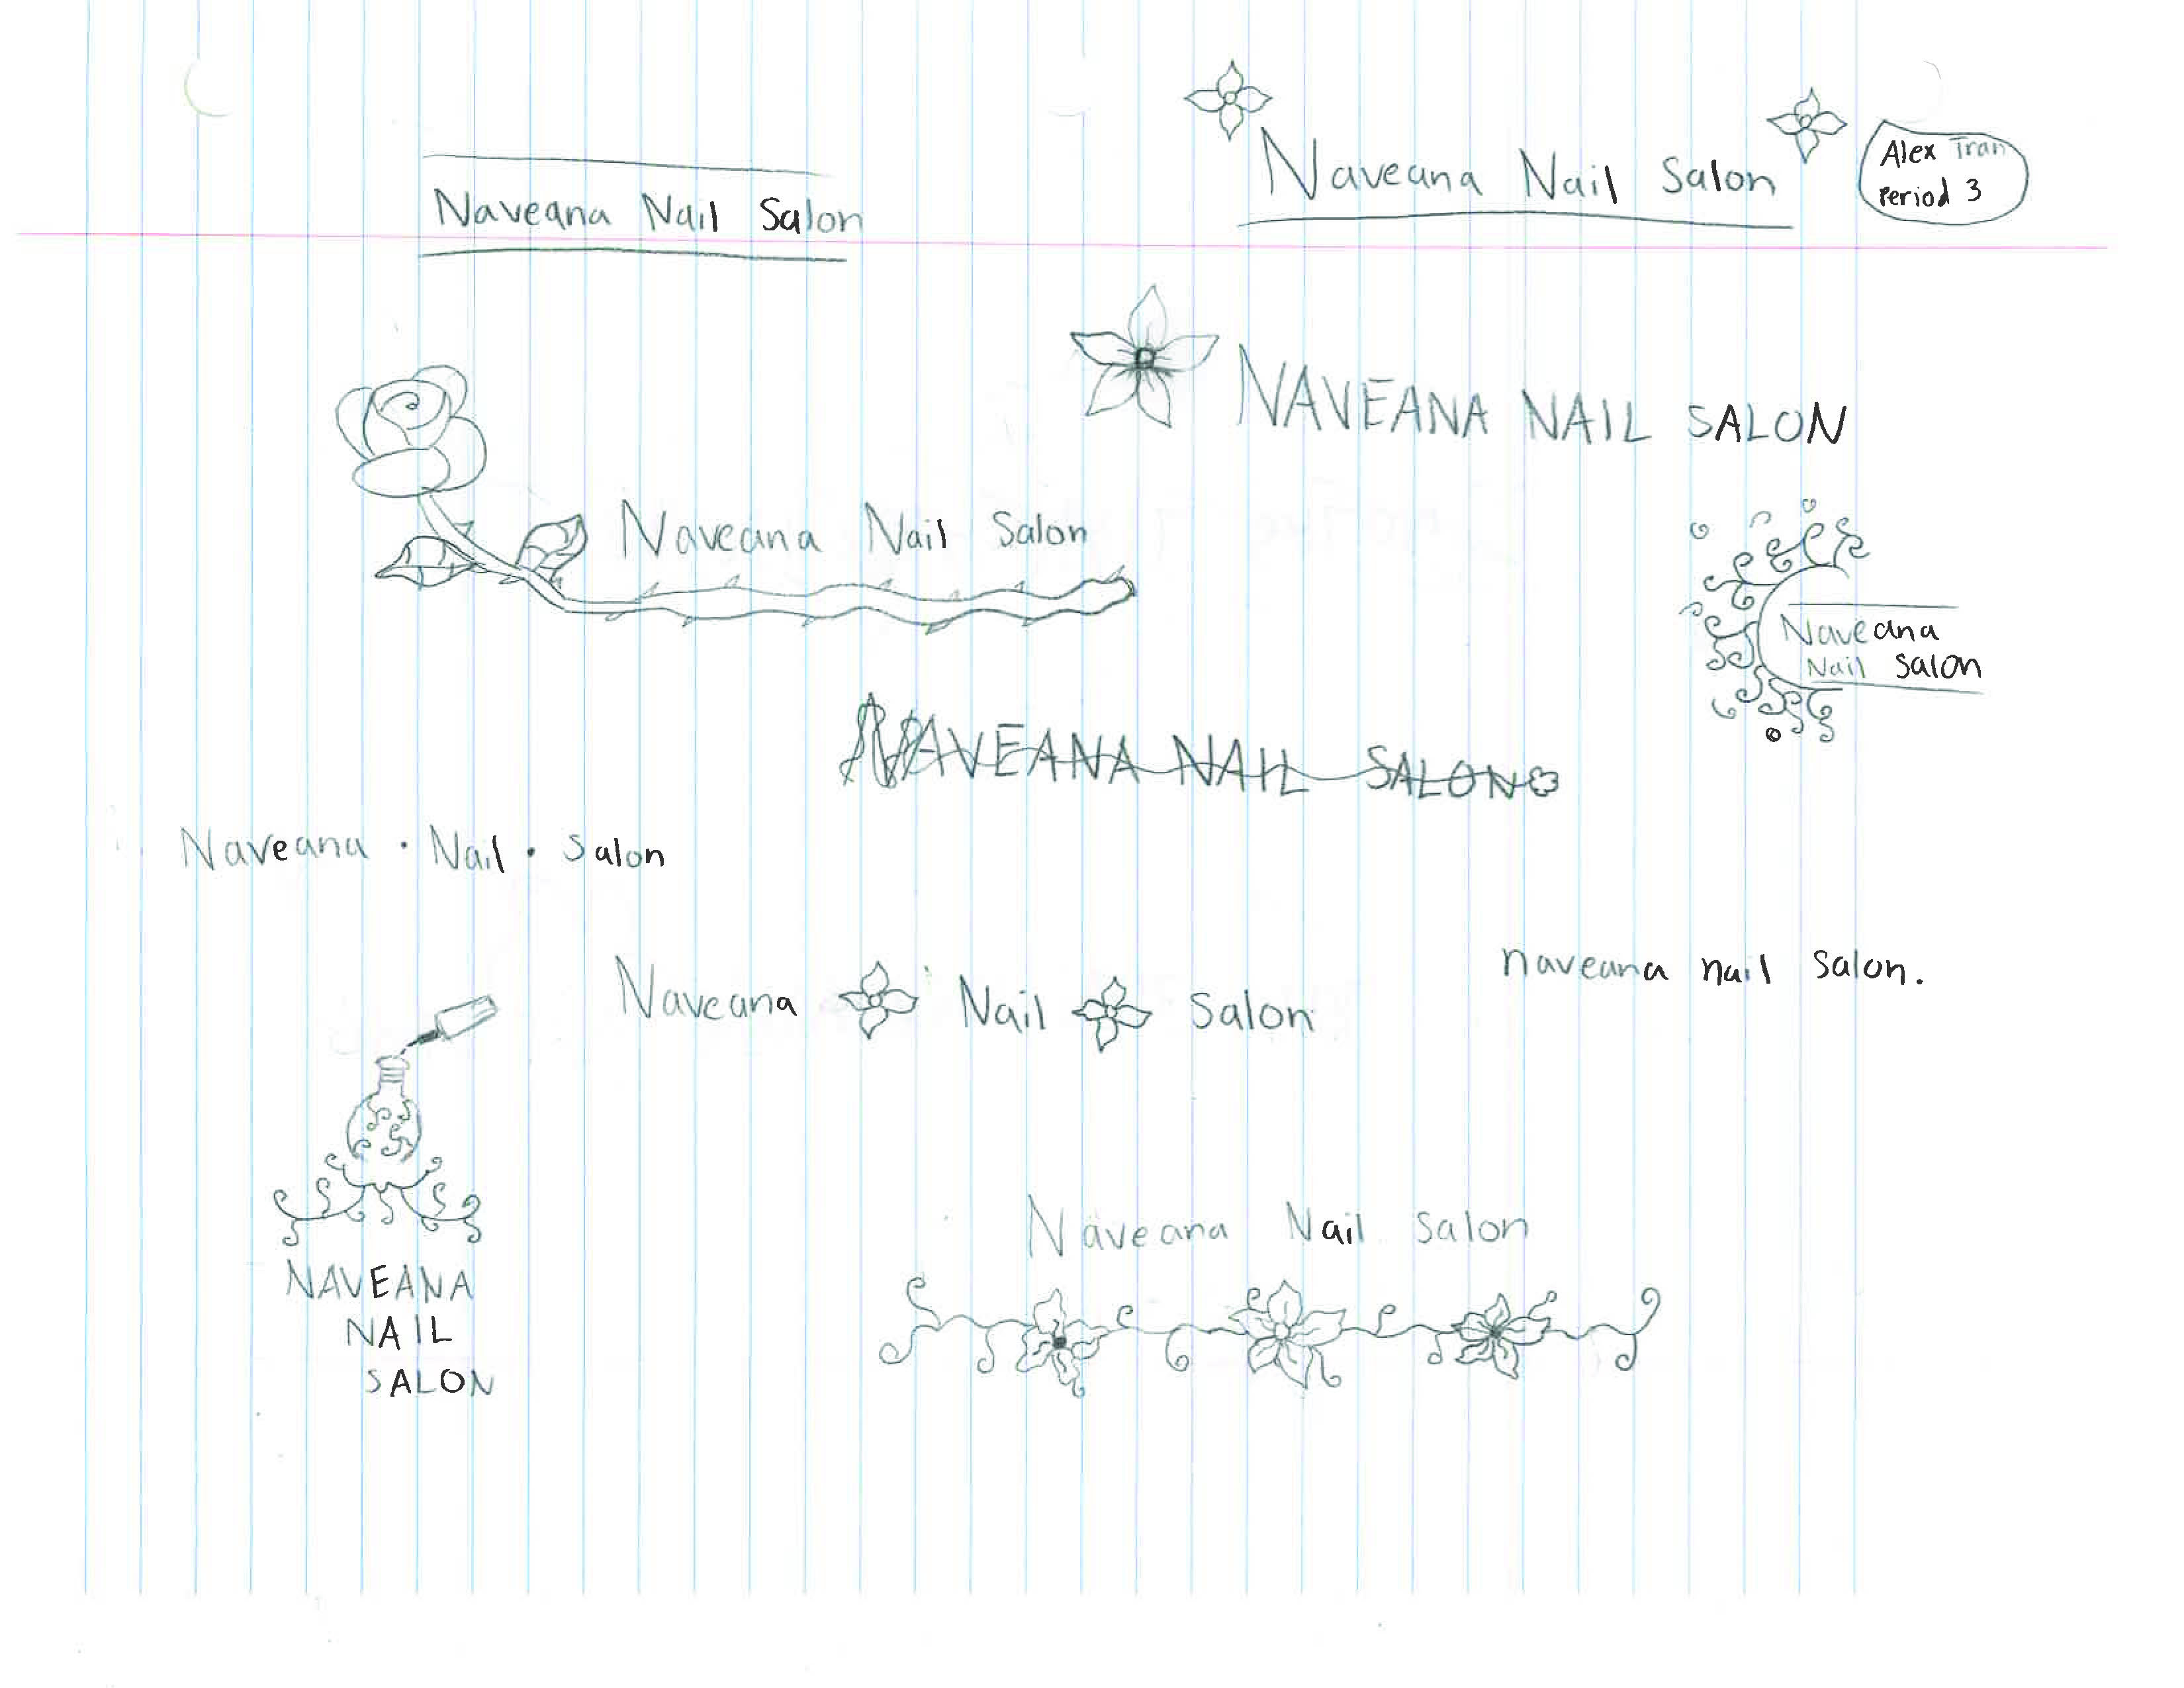 Naveana Nail Salon
Naveana Nail Salon
Alex Tran
Period 3
NAVEANA NAIL SALON
Naveana Nail Salon
Naveana
Nail Salon
NAVEANA NAIL SALON
Naveana · Nail · Salon
Naveana Nail Salon
naveana nail salon.
NAVEANA
NAIL
SALON
Naveana Nail Salon